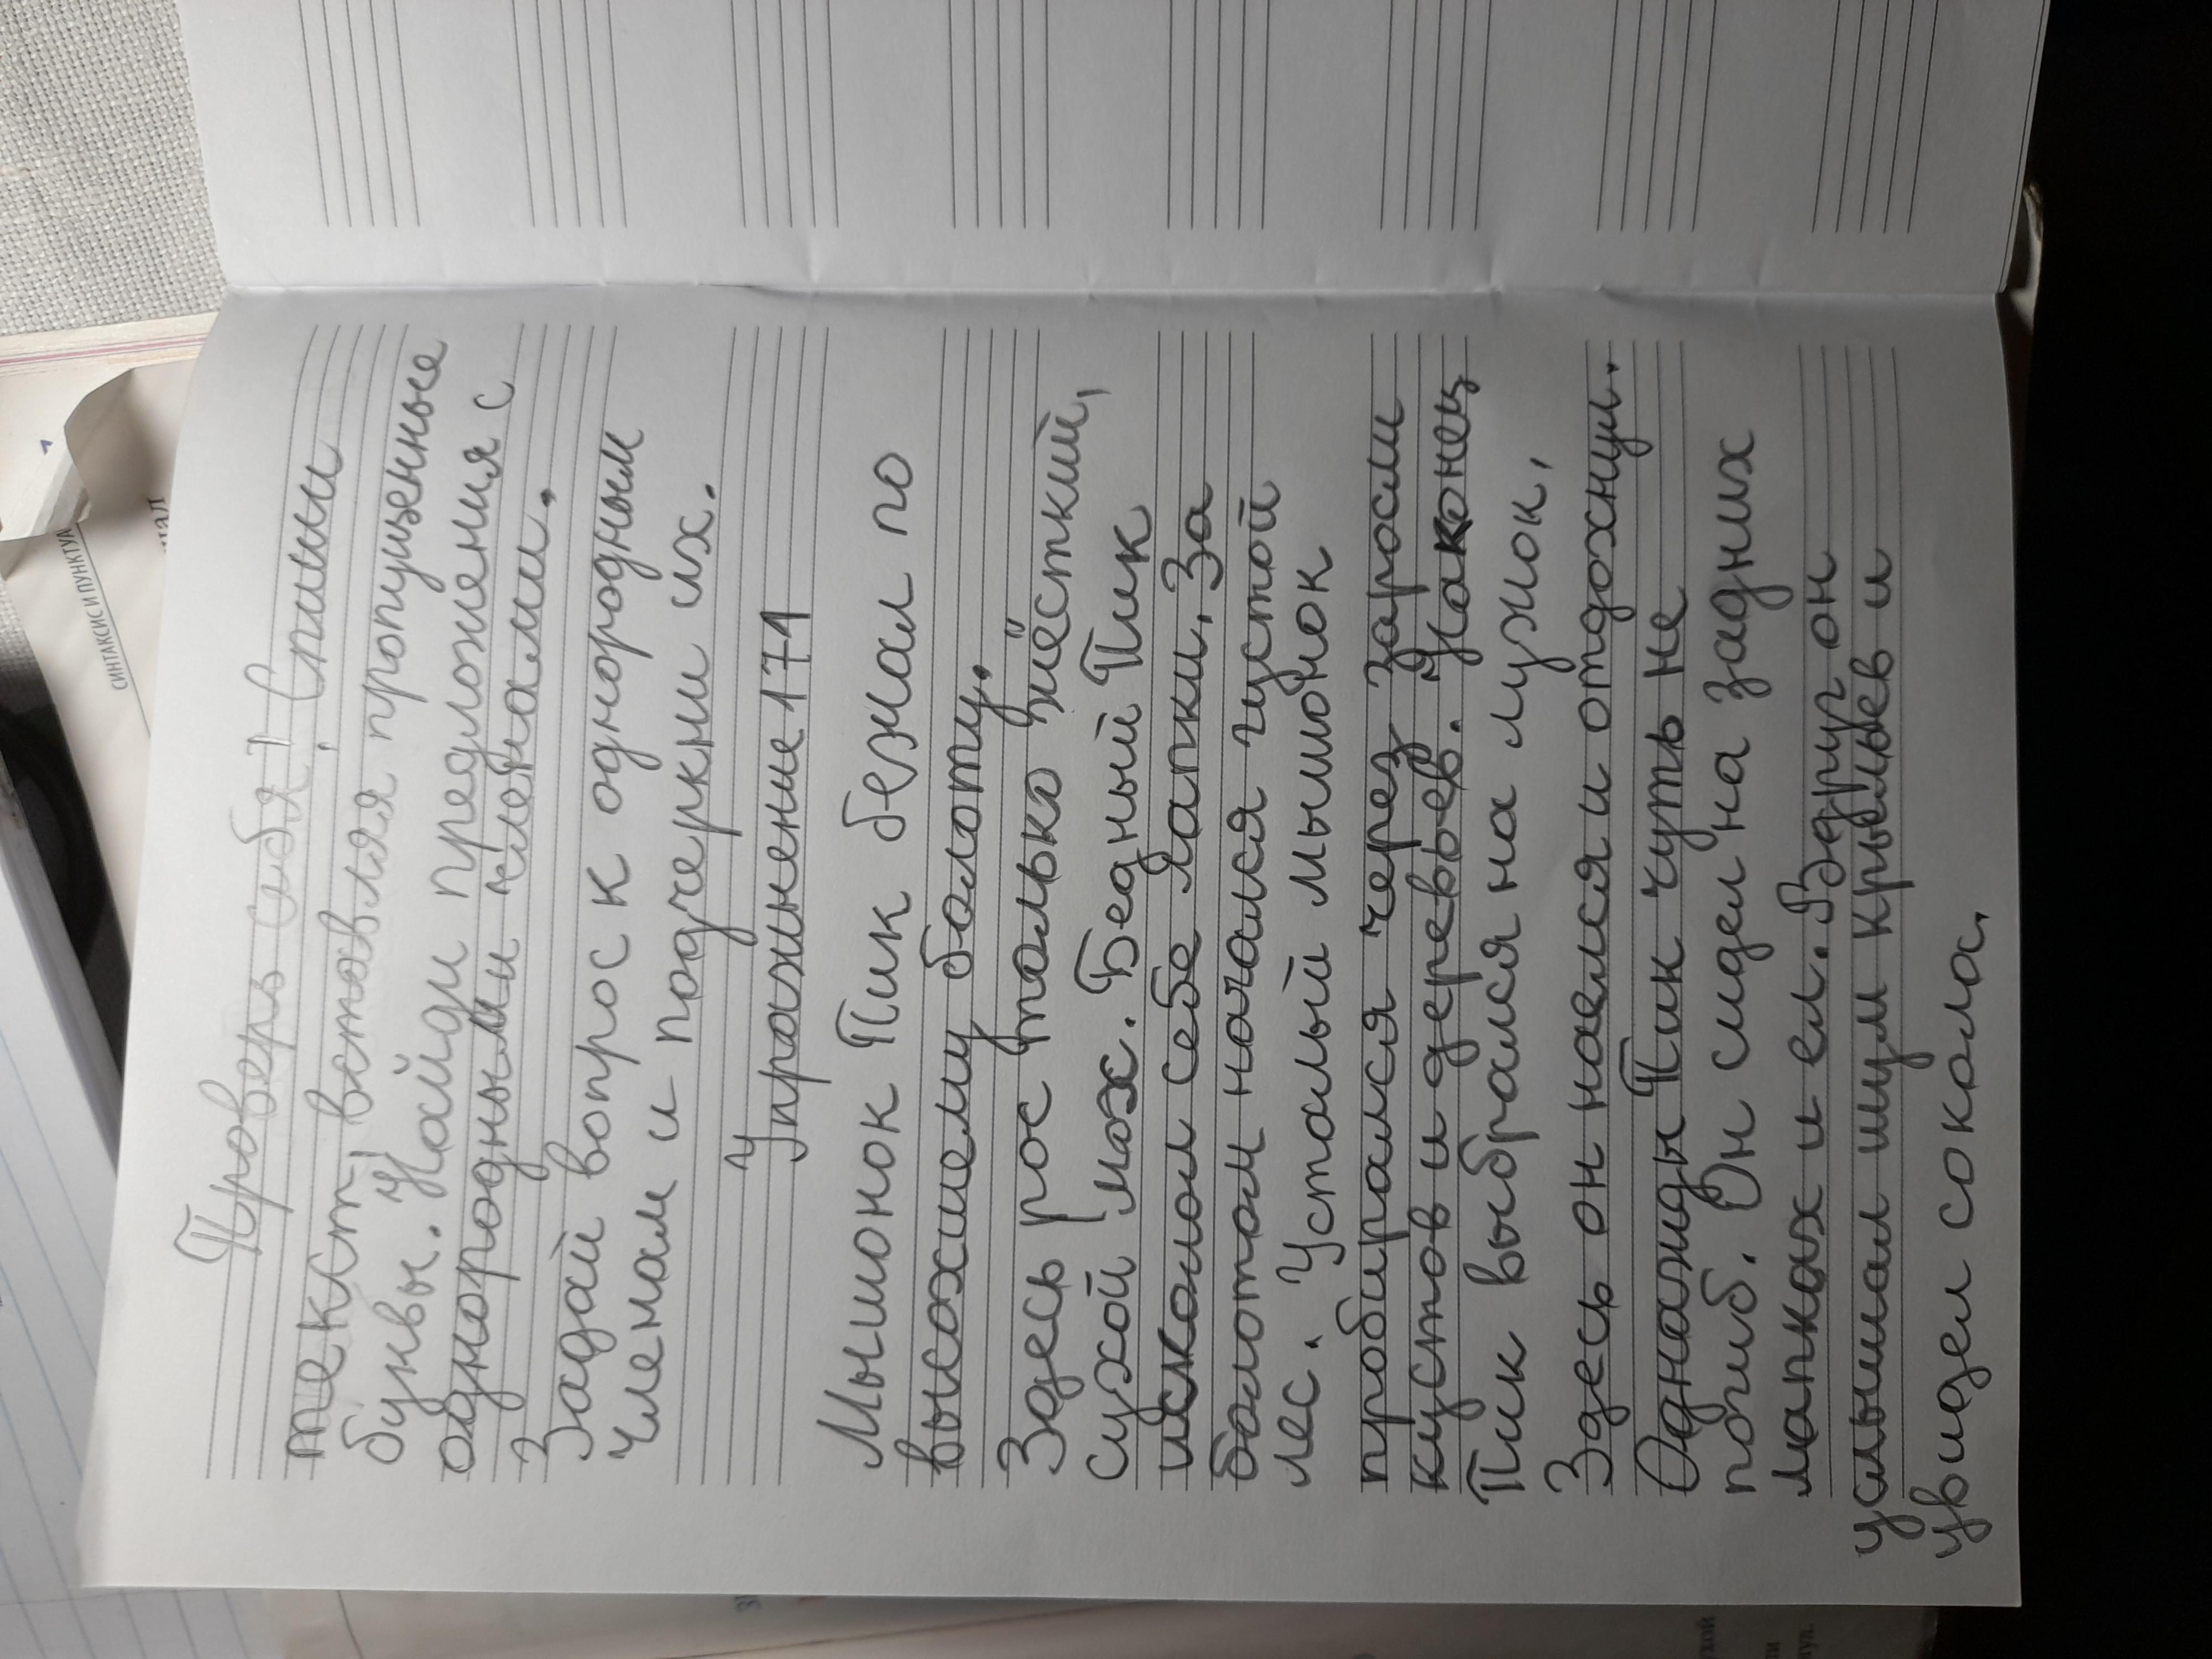 Проверь себя! Спиши
текст, вставляя пропущенные
буквы. Найди предложения с
однородными членами.
Задай вопрос к однородным
членам и подчеркни их.
Упражнение 171
Мышонок Пик бежал по
высохшему болоту.
Здесь рос только жёсткий,
сухой мох. Бедный Пик
исколол себе лапки. За
болотом начался густой
лес. Усталый мышонок
пробирался через заросли
кустов и деревьев. Наконец
Пик выбрался на лужок.
Здесь он наелся и отдохнул.
Однажды Пик чуть не
погиб. Он сидел на задних
лапках и ел. Вдруг он
услышал шум крыльев и
увидел сокола.
СИНТАКСИС И ПУНКТУА